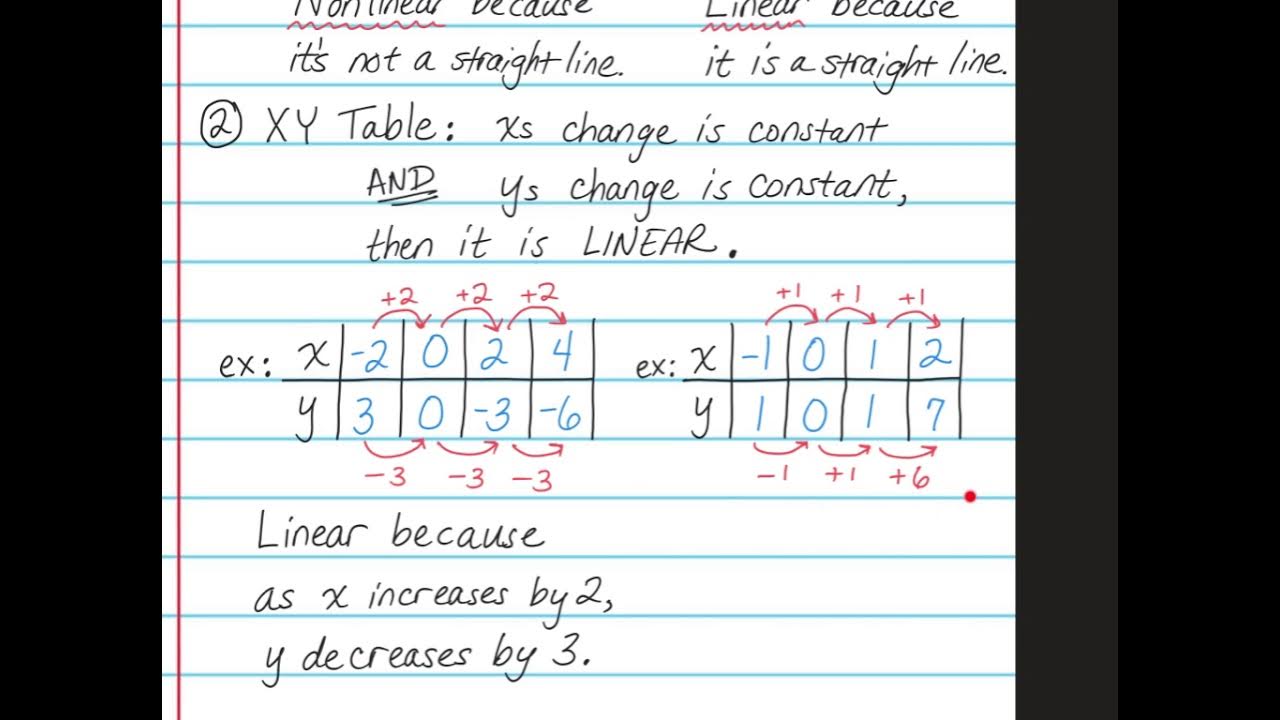 Nonlinear because Linear because
it's not a straight line. it is a straight line.
② XY Table: xs change is constant
AND ys change is constant,
then it is LINEAR.
+2 +2 +2 +1 +1 +1
ex: x -2 0 2 4 ex: x -1 0 1 2
y 3 0 -3 -6 y 1 0 1 7
-3 -3 -3 -1 +1 +6
Linear because
as x increases by 2,
y decreases by 3.